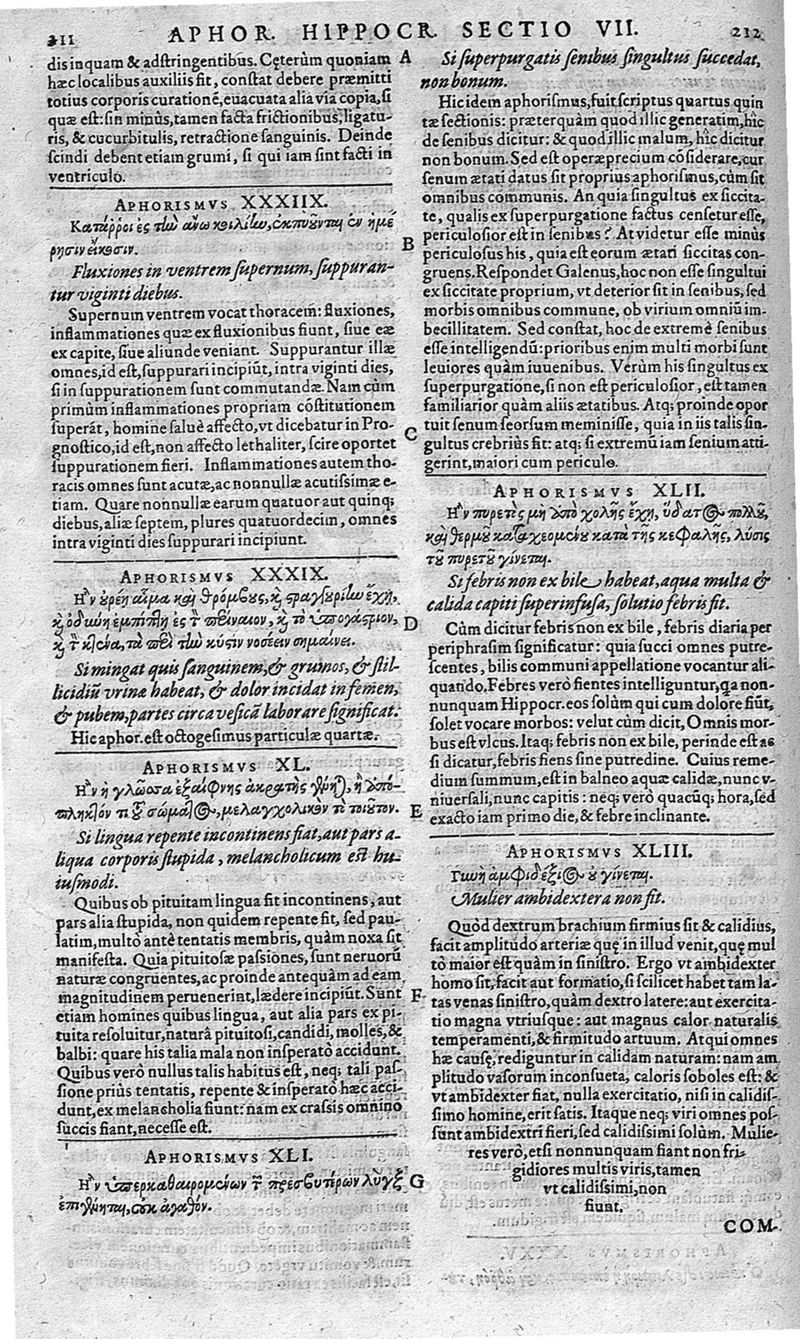 211 APHOR. HIPPOCR. SECTIO VII. 212
dis inquam & adstringentibus. Cęterùm quoniam
hæc localibus auxiliis fit, constat debere præmitti
totius corporis curationẽ, euacuata alia via copia, si
quæ est: sin minùs, tamen facta frictionibus, ligatu-
ris, & cucurbitulis, retractione sanguinis. Deinde
scindi debent etiam grumi, si qui iam sint facti in
ventriculo.
APHORISMVS XXXIIX.
Κατάῤῥοι ἐς τὴν ἄνω κοιλίην, ἐκπυοῦνται ἐν ἡμέ
ρῃσιν εἴκοσιν.
Fluxiones in ventrem supernum, suppuran-
tur viginti diebus.
Supernum ventrem vocat thoracem: fluxiones,
inflammationes quæ ex fluxionibus fiunt, siue eæ
ex capite, siue aliunde veniant. Suppurantur illæ
omnes, id est, suppurari incipiũt, intra viginti dies,
si in suppurationem sunt commutandæ. Nam cùm
primùm inflammationes propriam cõstitutionem
superãt, homine saluè affecto, vt dicebatur in Pro-
gnostico, id est, non affecto lethaliter, scire oportet
suppurationem fieri. Inflammationes autem tho-
racis omnes sunt acutæ, ac nonnullæ acutissimæ e-
tiam. Quare nonnullæ earum quatuor aut quinq;
diebus, aliæ septem, plures quatuordecim, omnes
intra viginti dies suppurari incipiunt.
APHORISMVS XXXIX.
Ἢν οὐρέῃ αἷμα καὶ θρόμβους, καὶ στραγγουρίην ἔχῃ,
καὶ ὀδύνη ἐμπίπτῃ ἐς τὸν περίναιον, καὶ τὸ ὑπογάστριον,
καὶ τὸν κτένα, τὰ περὶ τὴν κύστιν νοσέειν σημαίνει.
Si mingat quis sanguinem, & grumos, & stil-
licidiũ vrinæ habeat, & dolor incidat in femen,
& pubem, partes circa vesicã laborare significat.
Hic aphor. est octogesimus particulæ quartæ.
APHORISMVS XL.
Ἢν ἡ γλῶσσα ἐξαίφνης ἀκρατὴς γένηται, ἢ ἀπό-
πληκτόν τι τοῦ σώματος, μελαγχολικὸν τὸ τοιοῦτον.
Si lingua repente incontinens fiat, aut pars a-
liqua corporis stupida, melancholicum est hu-
iusmodi.
Quibus ob pituitam lingua fit incontinens, aut
pars alia stupida, non quidem repente fit, sed pau-
latim, multò antè tentatis membris, quàm noxa sit
manifesta. Quia pituitosæ passiones, sunt neruorũ
naturæ congruentes, ac proinde antequàm ad eam
magnitudinem peruenerint, lædere incipiũt. Sunt
etiam homines quibus lingua, aut alia pars ex pi-
tuita resoluitur, naturâ pituitosi, candidi, molles, &
balbi: quare his talia mala non insperatò accidunt.
Quibus verò nullus talis habitus est, neq; tali pas-
sione priùs tentatis, repente & insperatò hæc acci-
dunt, ex melancholia fiunt: nam ex crassis omnino
succis fiant, necesse est.
APHORISMVS XLI.
Ἢν ὑπερκαθαιρομένων τῶν πρεσβυτέρων λὺγξ
ἐπιγένηται, οὐκ ἀγαθόν.
A
B
C
D
E
F
G
Si superpurgatis senibus singultus succedat,
non bonum.
Hic idem aphorismus, fuit scriptus quartus quin
tæ sectionis: præterquàm quod illic generatim, hîc
de senibus dicitur: & quod illic malum, hîc dicitur
non bonum. Sed est operæprecium cõsiderare, cur
senum ætati datus sit proprius aphorismus, cùm sit
omnibus communis. An quia singultus ex siccita-
te, qualis ex superpurgatione factus censetur esse,
periculosior est in senibus? At videtur esse minùs
periculosus his, quia est eorum ætati siccitas con-
gruens. Respondet Galenus, hoc non esse singultui
ex siccitate proprium, vt deterior sit in senibus, sed
morbis omnibus commune, ob virium omniũ im-
becillitatem. Sed constat, hoc de extremè senibus
esse intelligendũ: prioribus enim multi morbi sunt
leuiores quàm iuuenibus. Verùm his singultus ex
superpurgatione, si non est periculosior, est tamen
familiarior quàm aliis ætatibus. Atq; proinde opor
tuit senum seorsum meminisse, quia in iis talis sin-
gultus crebriùs fit: atq; si extremũ iam senium atti-
gerint, maiori cum periculo.
APHORISMVS XLII.
Ἢν πυρετὸς μὴ ἀπὸ χολῆς ἔχῃ, ὕδατος πολλοῦ,
καὶ θερμοῦ καταχεομένου κατὰ τῆς κεφαλῆς, λύσις
τοῦ πυρετοῦ γίνεται.
Si febris non ex bile habeat, aqua multa &
calida capiti superinfusa, solutio febris fit.
Cùm dicitur febris non ex bile, febris diaria per
periphrasim significatur: quia succi omnes putre-
scentes, bilis communi appellatione vocantur ali-
quando. Febres verò fientes intelliguntur, qa non-
nunquam Hippocr. eos solùm qui cum dolore fiũt,
solet vocare morbos: velut cùm dicit, Omnis mor-
bus est vlcus. Itaq; febris non ex bile, perinde est ac
si dicatur, febris fiens sine putredine. Cuius reme-
dium summum, est in balneo aquæ calidæ, nunc v-
niuersali, nunc capitis: neq; verò quacũq; hora, sed
exacto iam primo die, & febre inclinante.
APHORISMVS XLIII.
Γυνὴ ἀμφιδέξιος οὐ γίνεται.
Mulier ambidextera non fit.
Quòd dextrum brachium firmius sit & calidius,
facit amplitudo arteriæ quę in illud venit, quę mul
tò maior est quàm in sinistro. Ergo vt ambidexter
homo sit, facit aut formatio, si scilicet habet tam la-
tas venas sinistro, quàm dextro latere: aut exercita-
tio magna vtriusque: aut magnus calor naturalis
temperamenti, & firmitudo artuum. Atqui omnes
hæ causę, rediguntur in calidam naturam: nam am
plitudo vasorum inconsueta, caloris soboles est: &
vt ambidexter fiat, nulla exercitatio, nisi in calidis-
simo homine, erit satis. Itaque neq; viri omnes pos-
sunt ambidextri fieri, sed calidissimi solùm. Mulie-
res verò, etsi nonnunquam fiant non fri-
gidiores multis viris, tamen
vt calidissimi, non
fiunt.
COM-